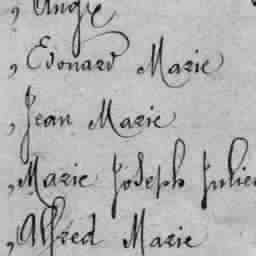 , Ange
, Edouard Marie
, Jean Marie
, Marie Joseph Julien
, Alfred Marie